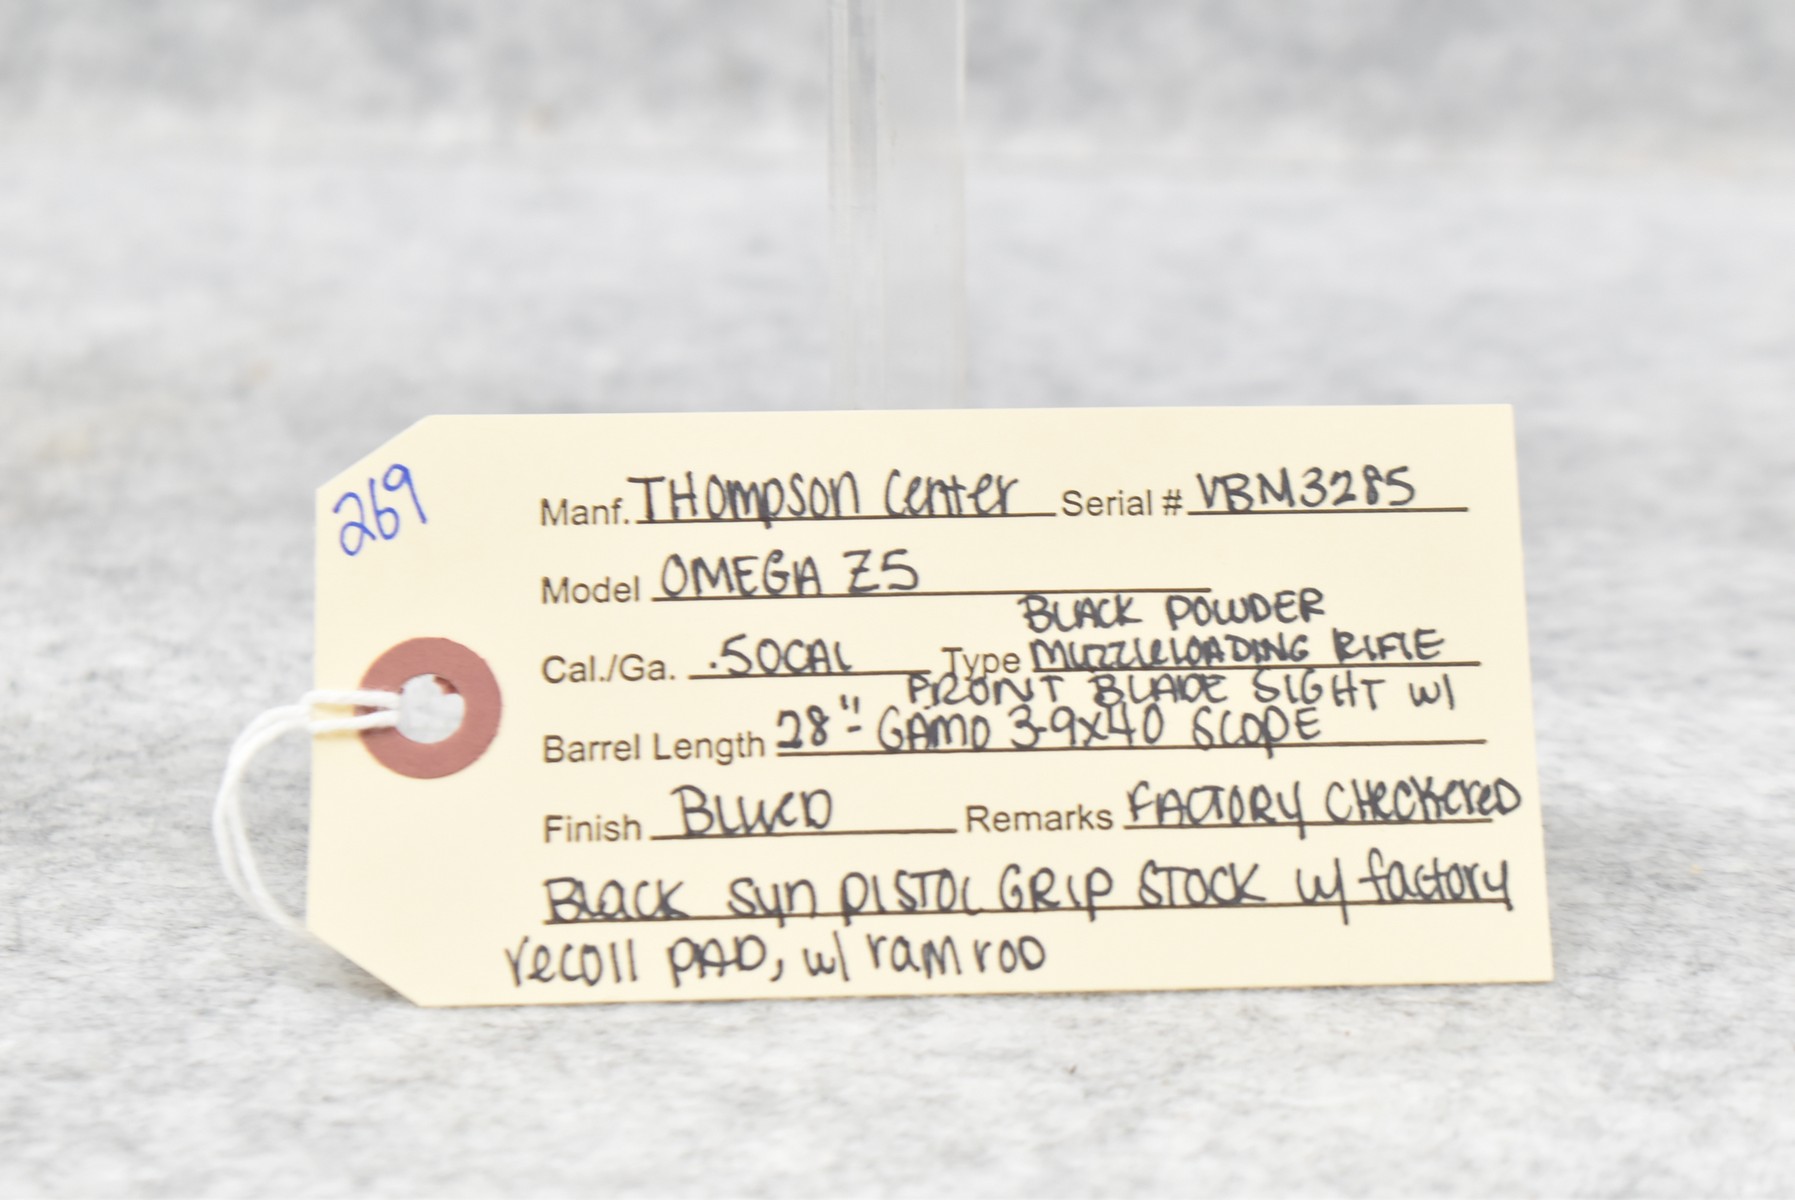 269
Manf. THompson Center Serial # VBM3285
Model OMEGA Z5
BLACK POWDER
Cal./Ga. .50CAL Type MUZZLELOADING RIFLE
FRONT BLADE SIGHT w/
Barrel Length 28" - GAMO 3-9x40 SCOPE
Finish BLUED Remarks FACTORY CHECKERED
BLACK syn PISTOL GRIP STOCK w/ factory
recoil PAD, w/ ramrod